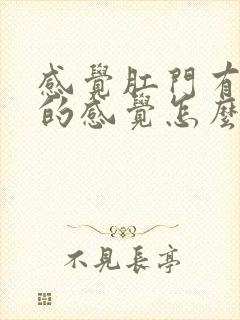 感覺肛門有
的感覺怎麼
不見長亭